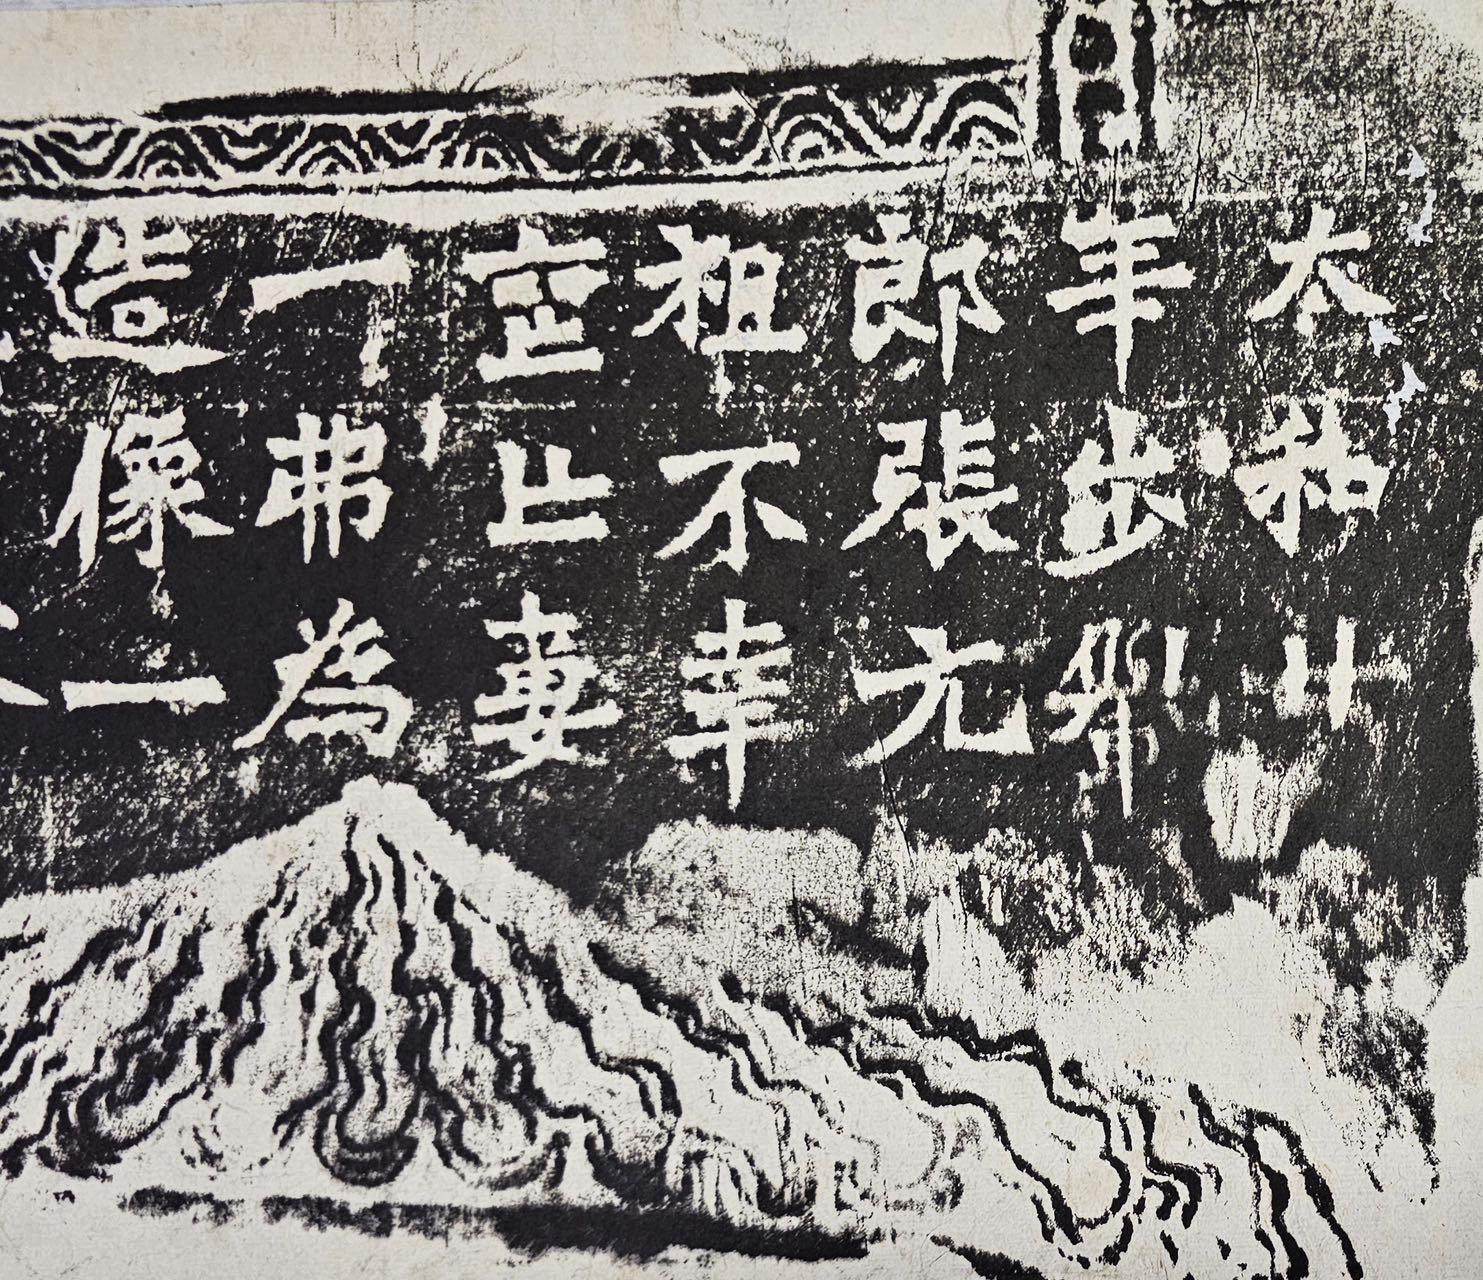 太和廿
年步轝
郎張元
祖不幸
喪亡妻
一弗為
造像一